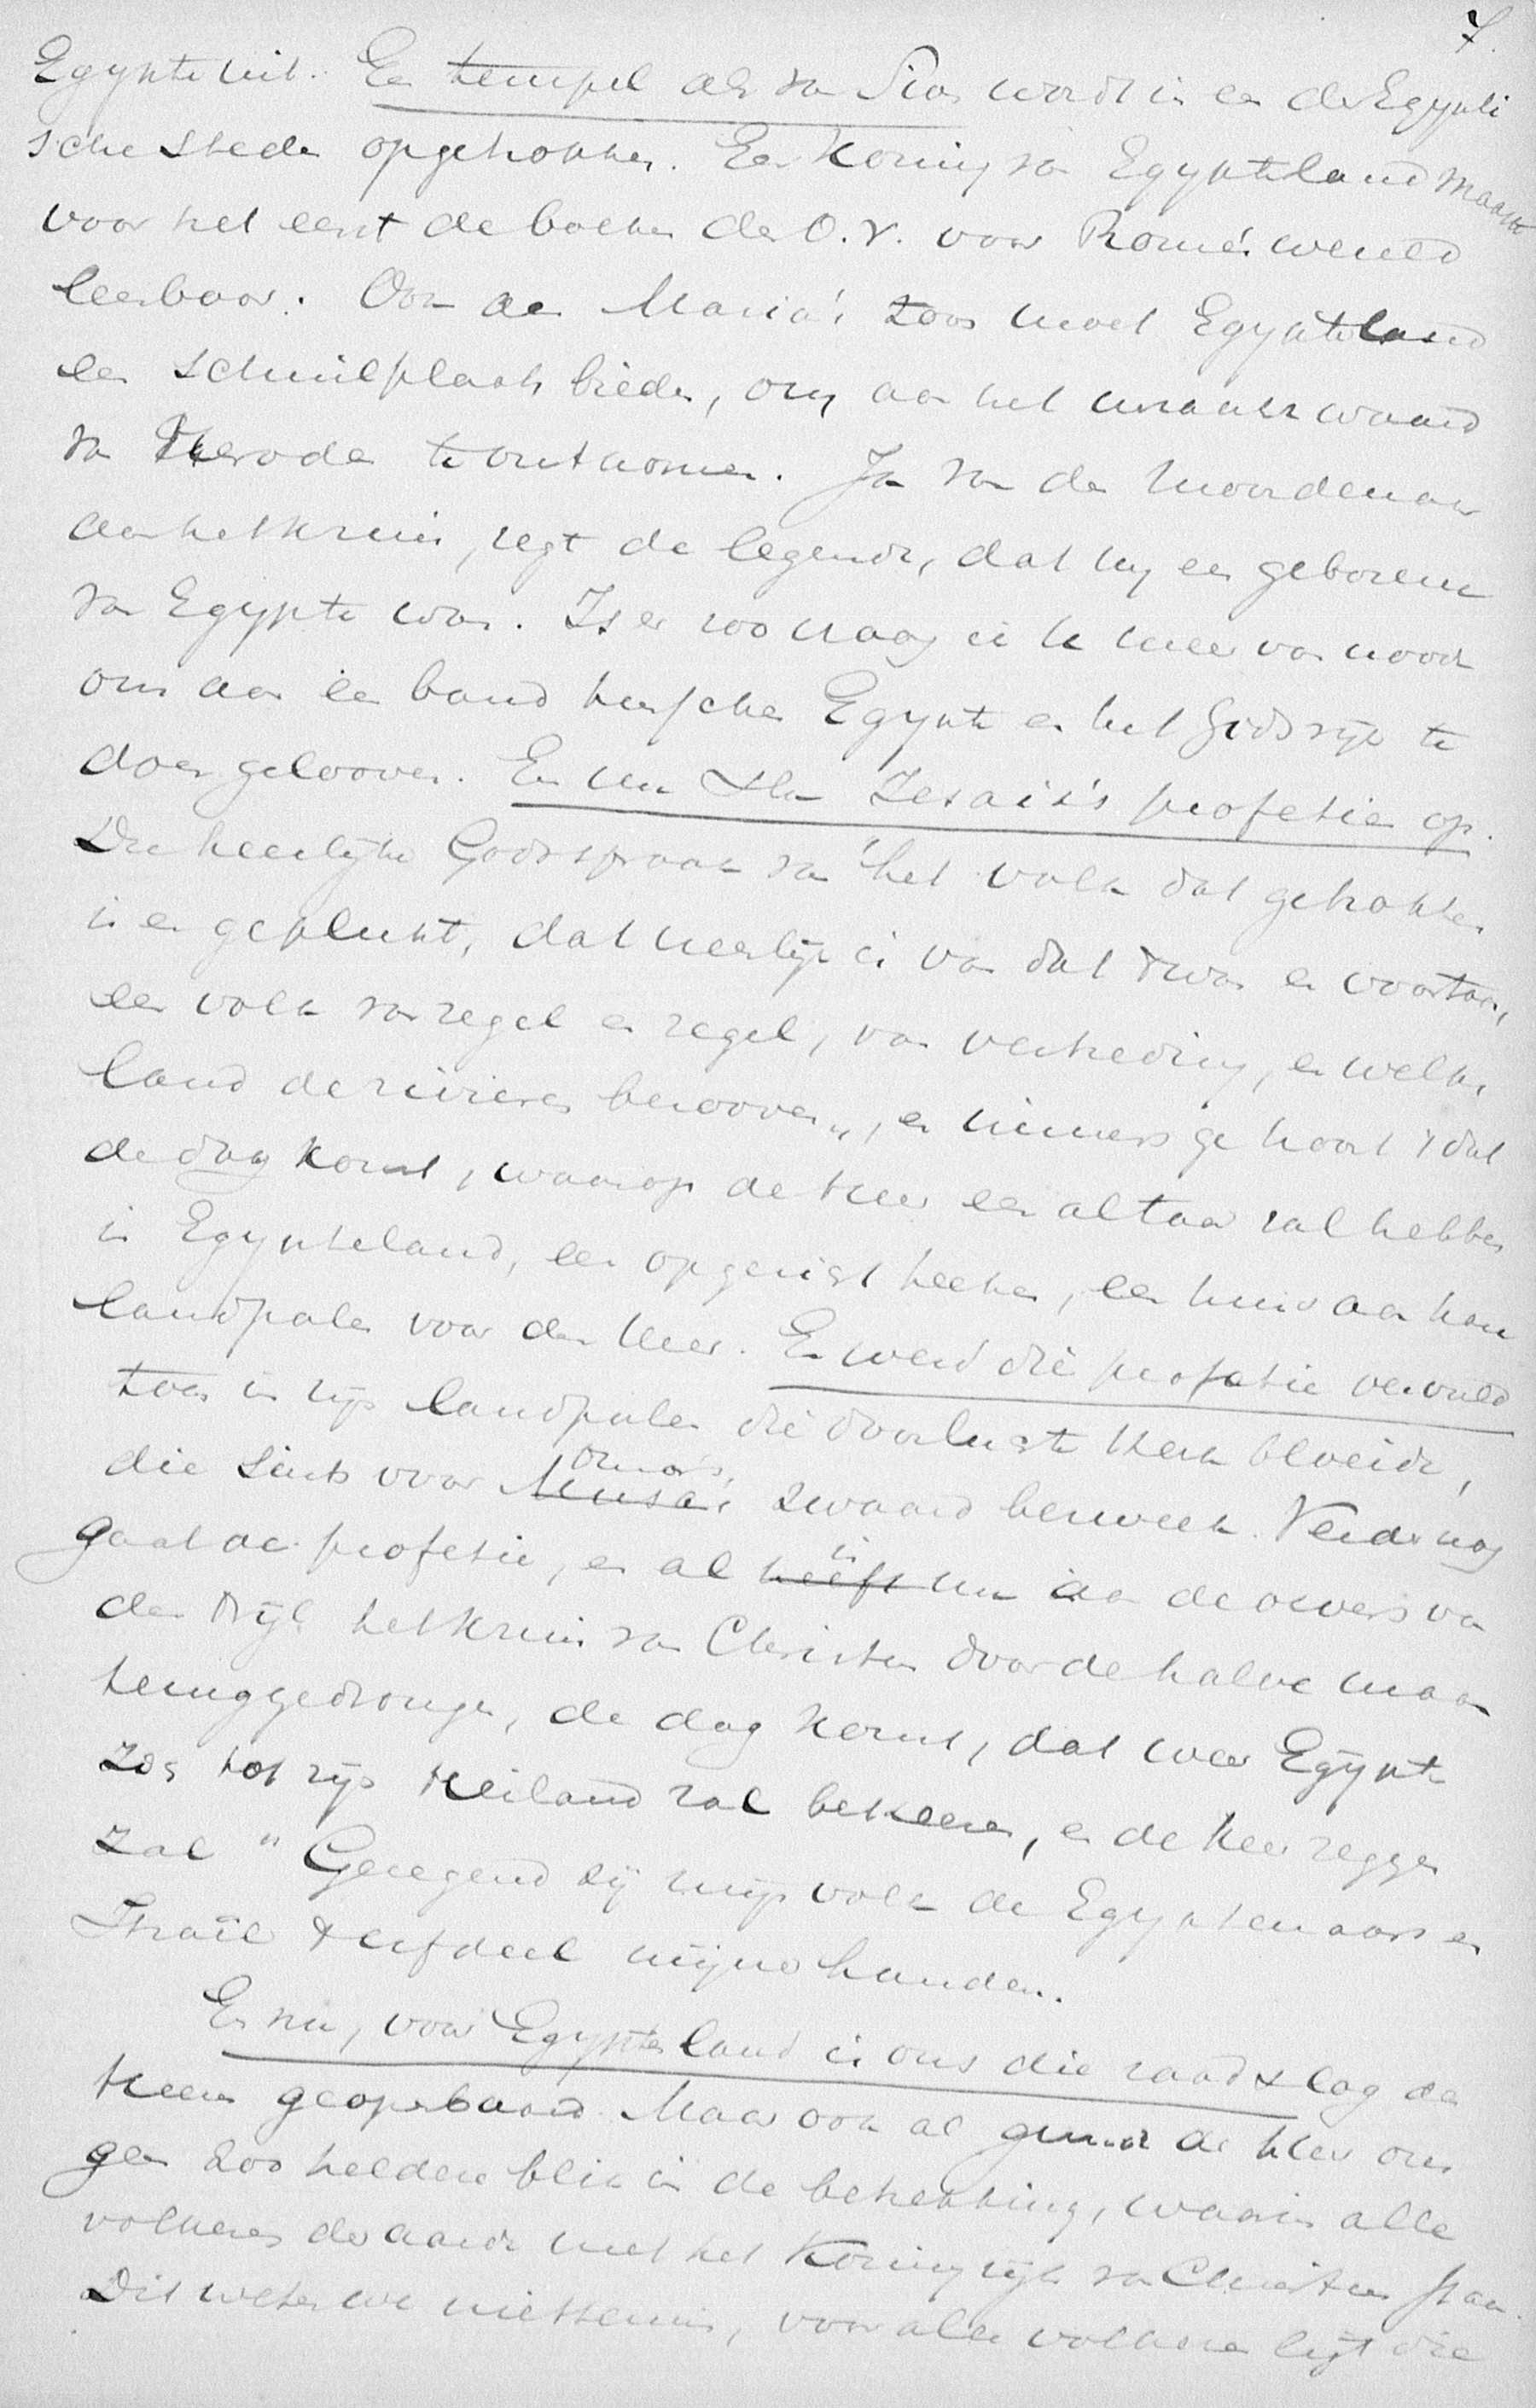 7.
Egypte uit. Een tempel als van Sion wordt in een der Egypti
sche steden opgetrokken. Een Koning van Egypteland maakt
voor het eerst de boeken des O.V. voor Rome's wereld
leesbaar. Ook aan Maria's zoon moet Egypteland
een schuilplaats bieden, om aan het wraakzwaard
van Herodes te ontkomen. Ja van den moordenaar
aan het kruis, zegt de legende, dat hij een geborene
van Egypte was. Is er zoo vraag ik U meer van noode
om aan een band tusschen Egypte en het Godsrijk te
doen gelooven. En nu sla Jesaia's profetien op.
Die heerlijke Godsspraak van "het volk dat getrokken
is en geplukt, dat heerlijk is van dat 't was en voortaan,
een volk van regel en regel, van vertreding, en welks
land de rivieren berooven", en immers ge hoort 't dat
de dag komt, waarop de Heer een altaar zal hebben
in Egypteland, een opgericht teeken, een huis aan hare
landpalen voor den Heer. En werd die profetie vervuld
toen in zijn landpalen die doorluchte Kerk bloeide,
die sints voor Musa's Omars, zwaard bezweek. Verder nog
gaat de profetie, en al heeft is nu aan de oevers van
den Nijl het kruis van Christus door de halve maan
teruggedrongen, de dag komt, dat weer Egypte
zich tot zijn Heiland zal bekeeren, en de Heer zeggen
zal "Gezegend zij mijn volk de Egyptenaars en
Israël 't erfdeel mijner handen.
En nu, voor Egypteland is ons die raadslag des
Heeren geopenbaard. Maar ook al gunde de Heer ons
geen zoo heldere blik in de betrekking, waarin alle
volkeren der aarde met het Koningrijk van Christus staan.
Dit weten we niettemin, voor alle volkeren ligt die